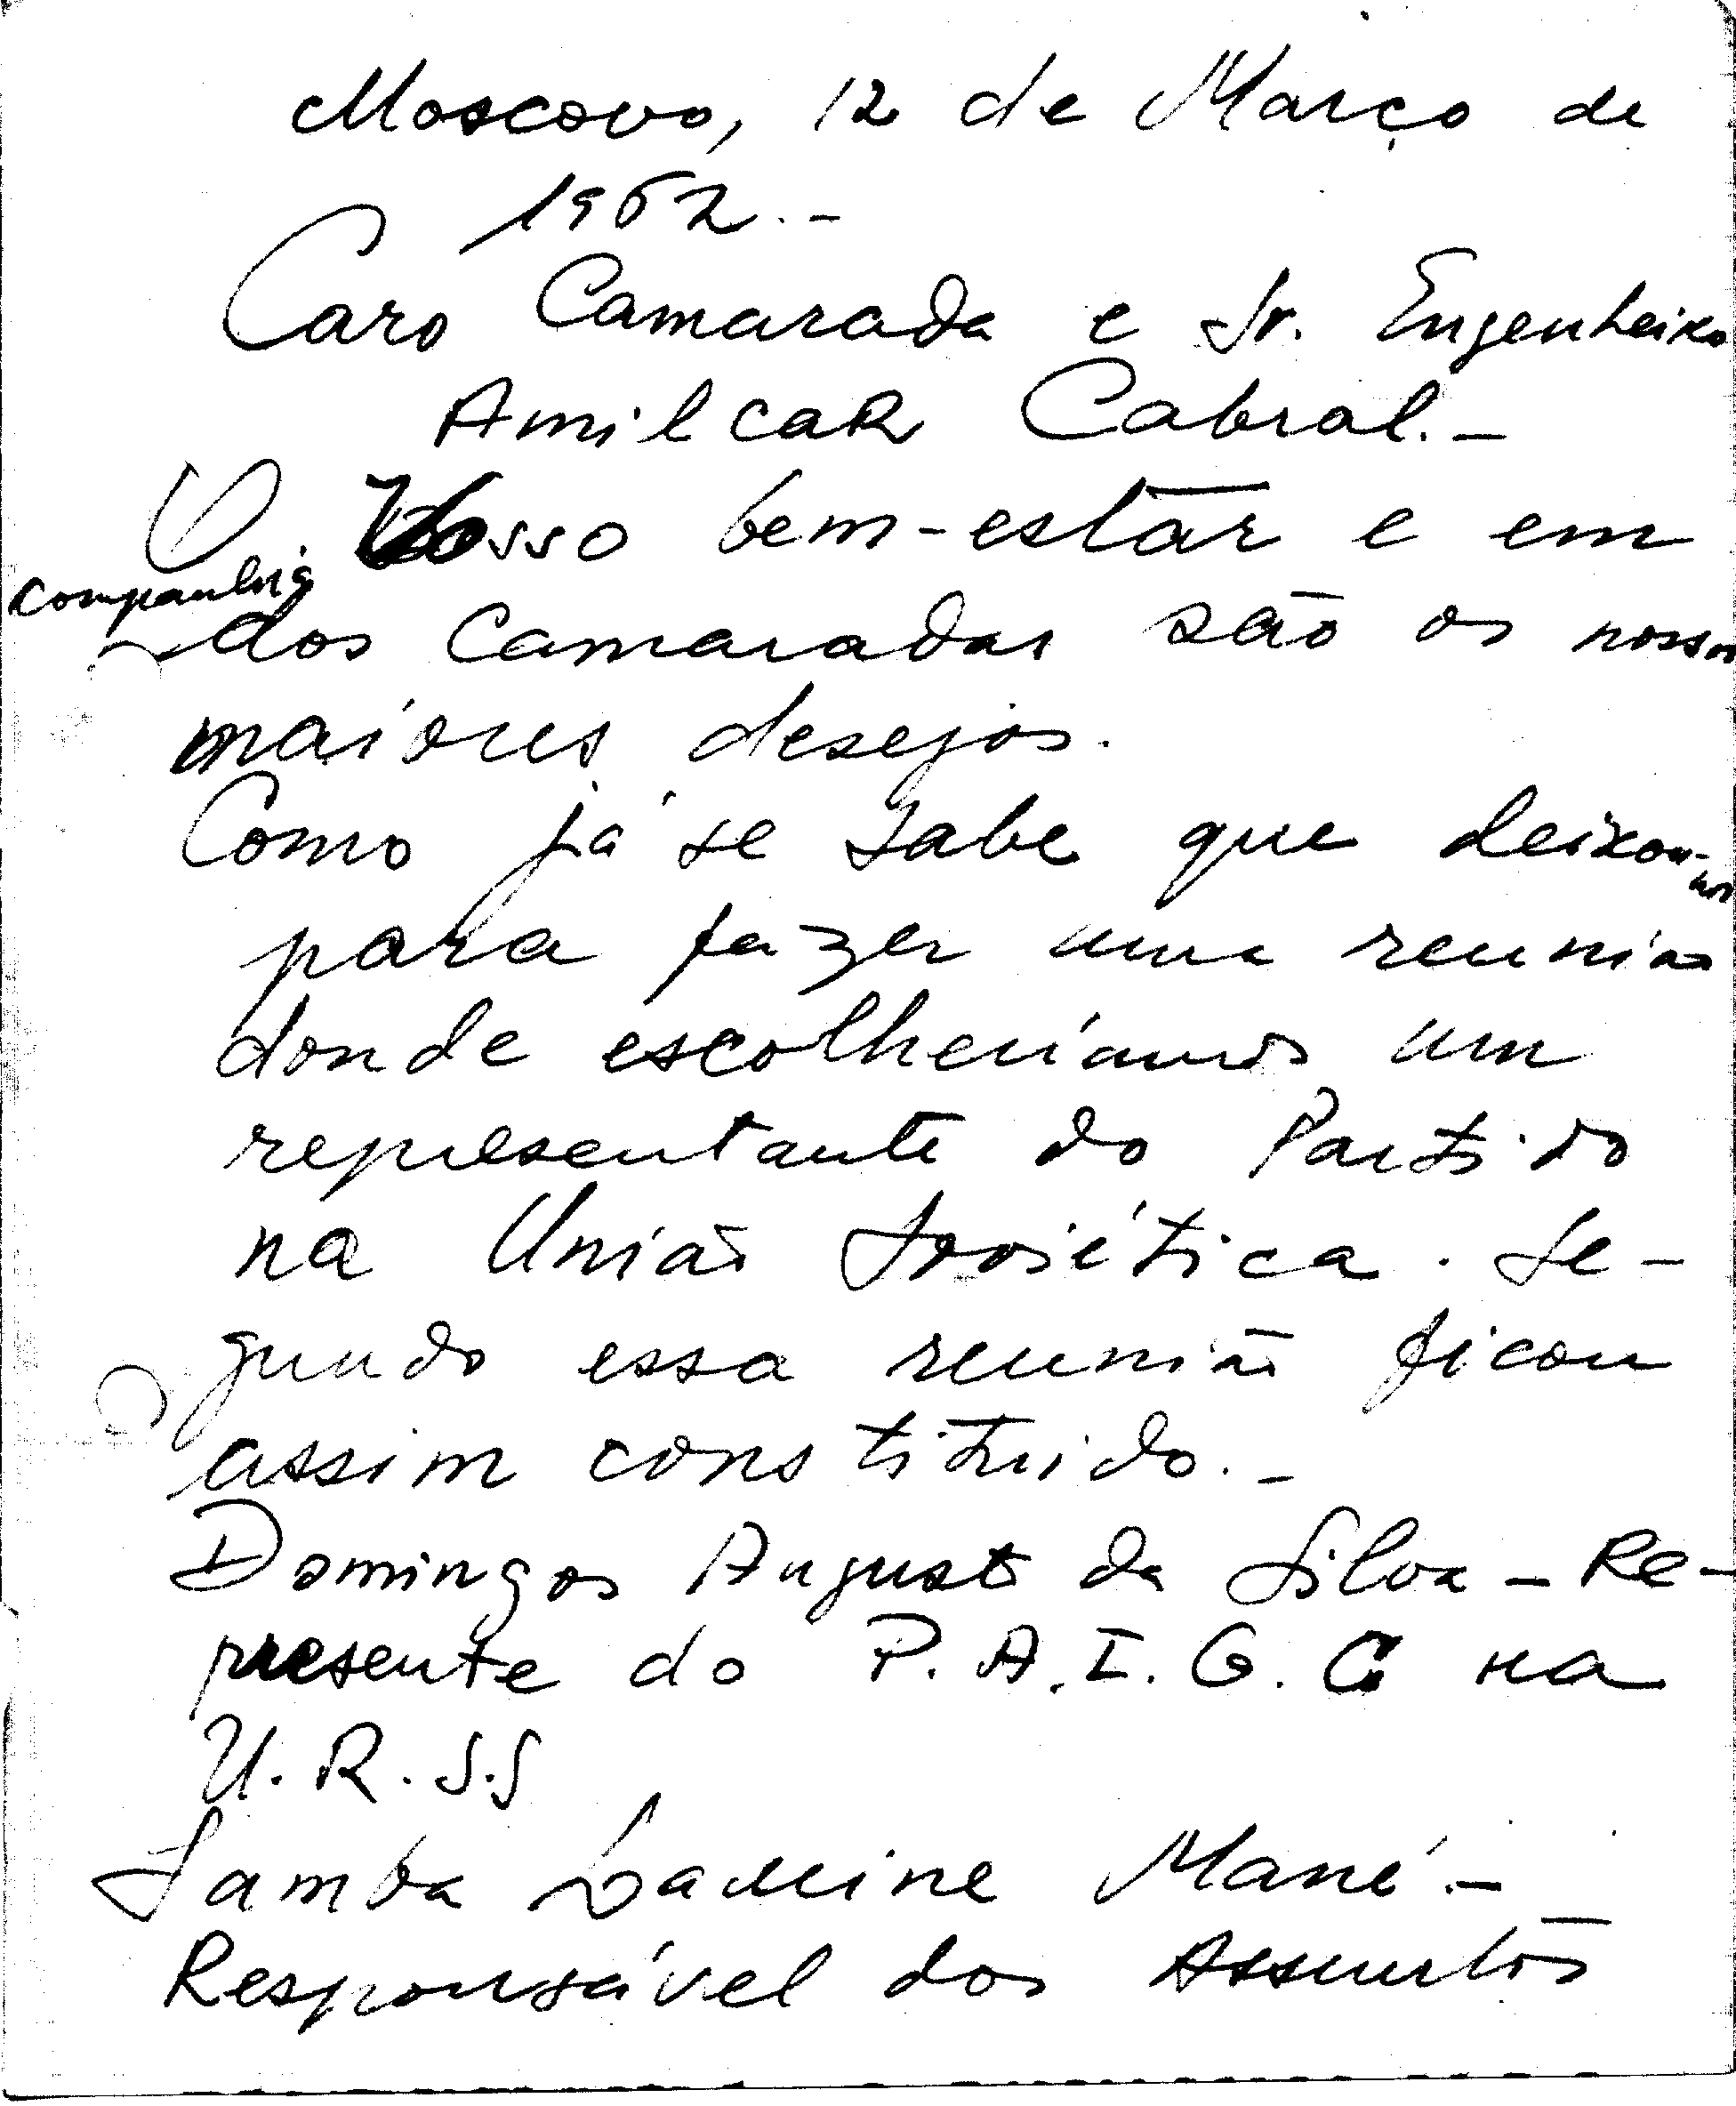 Moscovo, 12 de Março de
1962.-
Caro Camarada e Sr. Engenheiro
Amilcar Cabral.-
O Vosso bem-estar e em
companhia
dos Camaradas são os nossos
maiores desejos.
Como já se sabe que deixou-nos
para fazer uma reunião
donde escolheriamos um
representante do Partido
na União Soviética. Se-
gundo essa reunião ficou
assim constituido.-
Domingos Augusto da Silva - Re-
presente do P.A.I.G.C na
U.R.S.S
Samba Lamine Mané.-
Responsável dos Assuntos